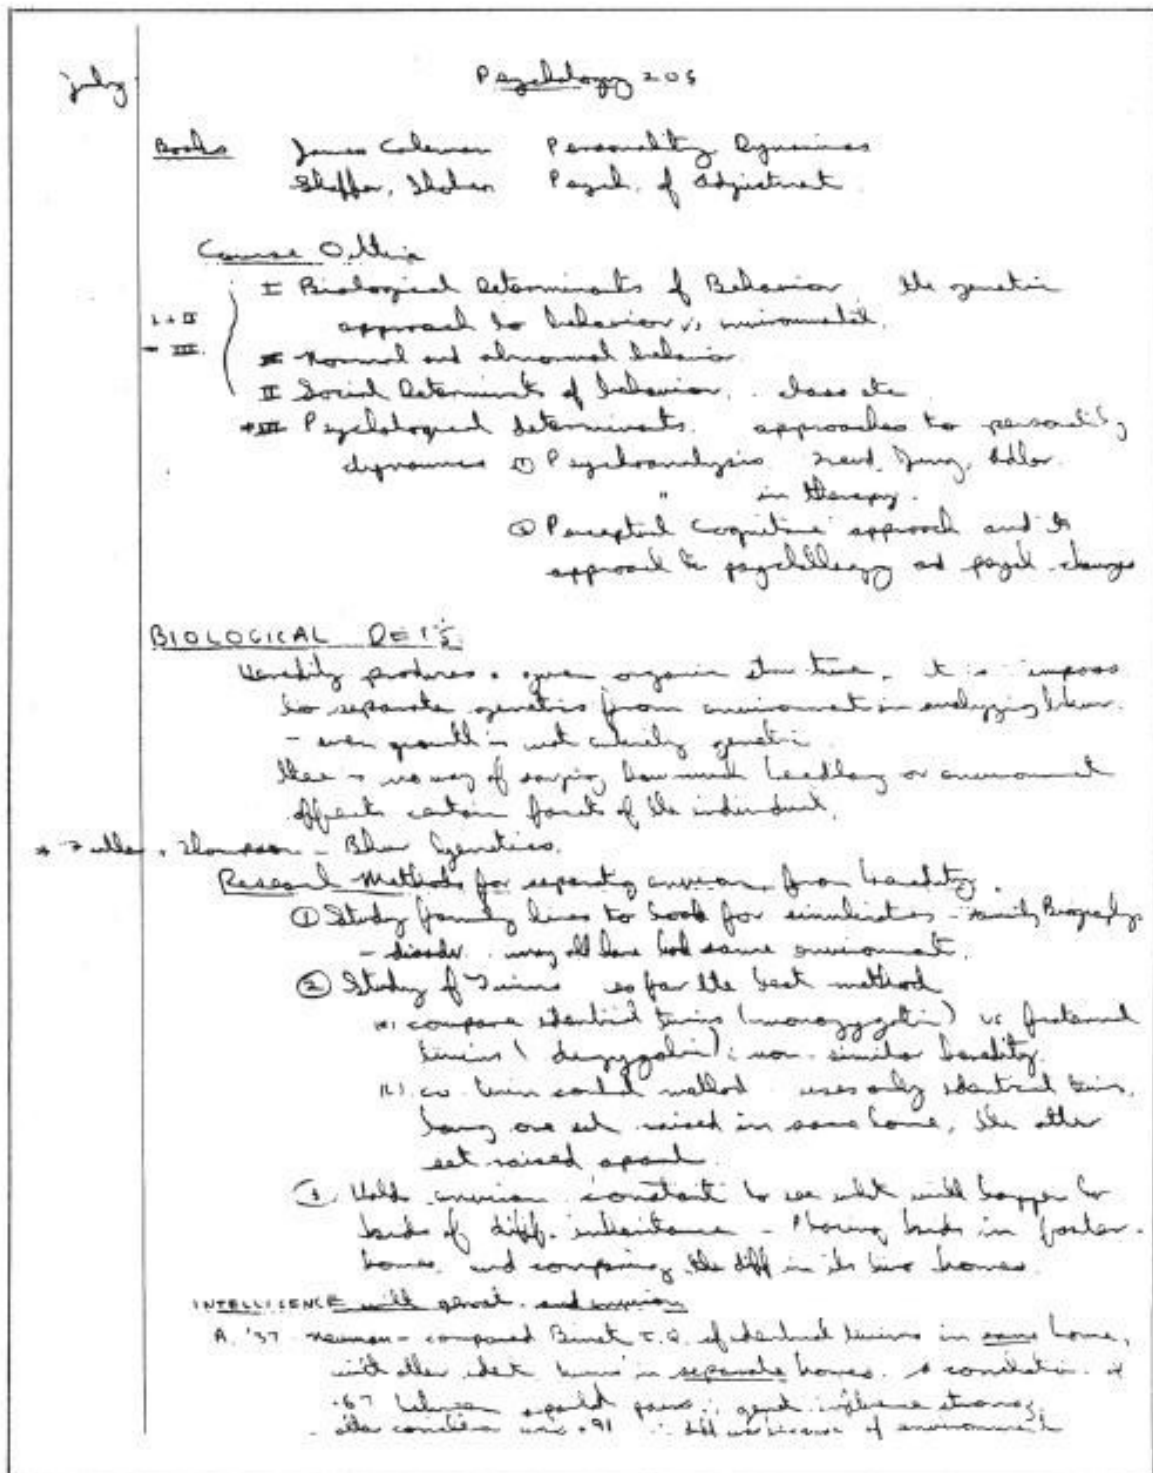 July
Psychology 205
Books James Coleman Personality Dynamics
Shaffer, Shoben Psych. of Adjustment
Course Outline
I Biological Determinants of Behavior. the genetic
approach to behavior vs environmental.
I + II
III.
Normal and abnormal behavior
II Social Determinants of behavior, class etc
III Psychological determinants. approaches to personality
dynamics ① Psychoanalysis Freud, Jung, Adler
" in therapy.
② Perceptual Cognitive approach and its
approach to psychotherapy and psych. change
BIOLOGICAL DET'S
Heredity produces a given organic structure. it is imposs
to separate genetics from environment in analyzing behav.
- even growth is not entirely genetic
there is no way of saying how much heredity or environment
affects certain facets of the individual.
* Fuller + Thompson - Behav Genetics.
Research Methods for separating environ. from heredity.
① Study family lines to look for similarities - Family Biography
- disadv. may all have had same environment.
② Study of Twins so far the best method
compare identical twins (monozygotic) vs fraternal
twins (dizygotic): non-similar heredity.
co-twin control method uses only identical twins.
having one set raised in same home, the other
set raised apart.
Hold environ constant to see what will happen to
kids of diff. inheritance - Placing kids in foster-
homes and comparing the diff in the two homes.
INTELLIGENCE with genet. and environ
A. '37 Newman - compared Binet I.Q. of identical twins in same home,
with other ident twins in separate homes. A correlation of
.67 between apart pairs ∴ genet influence strong.
- other correlation was .91 ∴ diff was because of environment